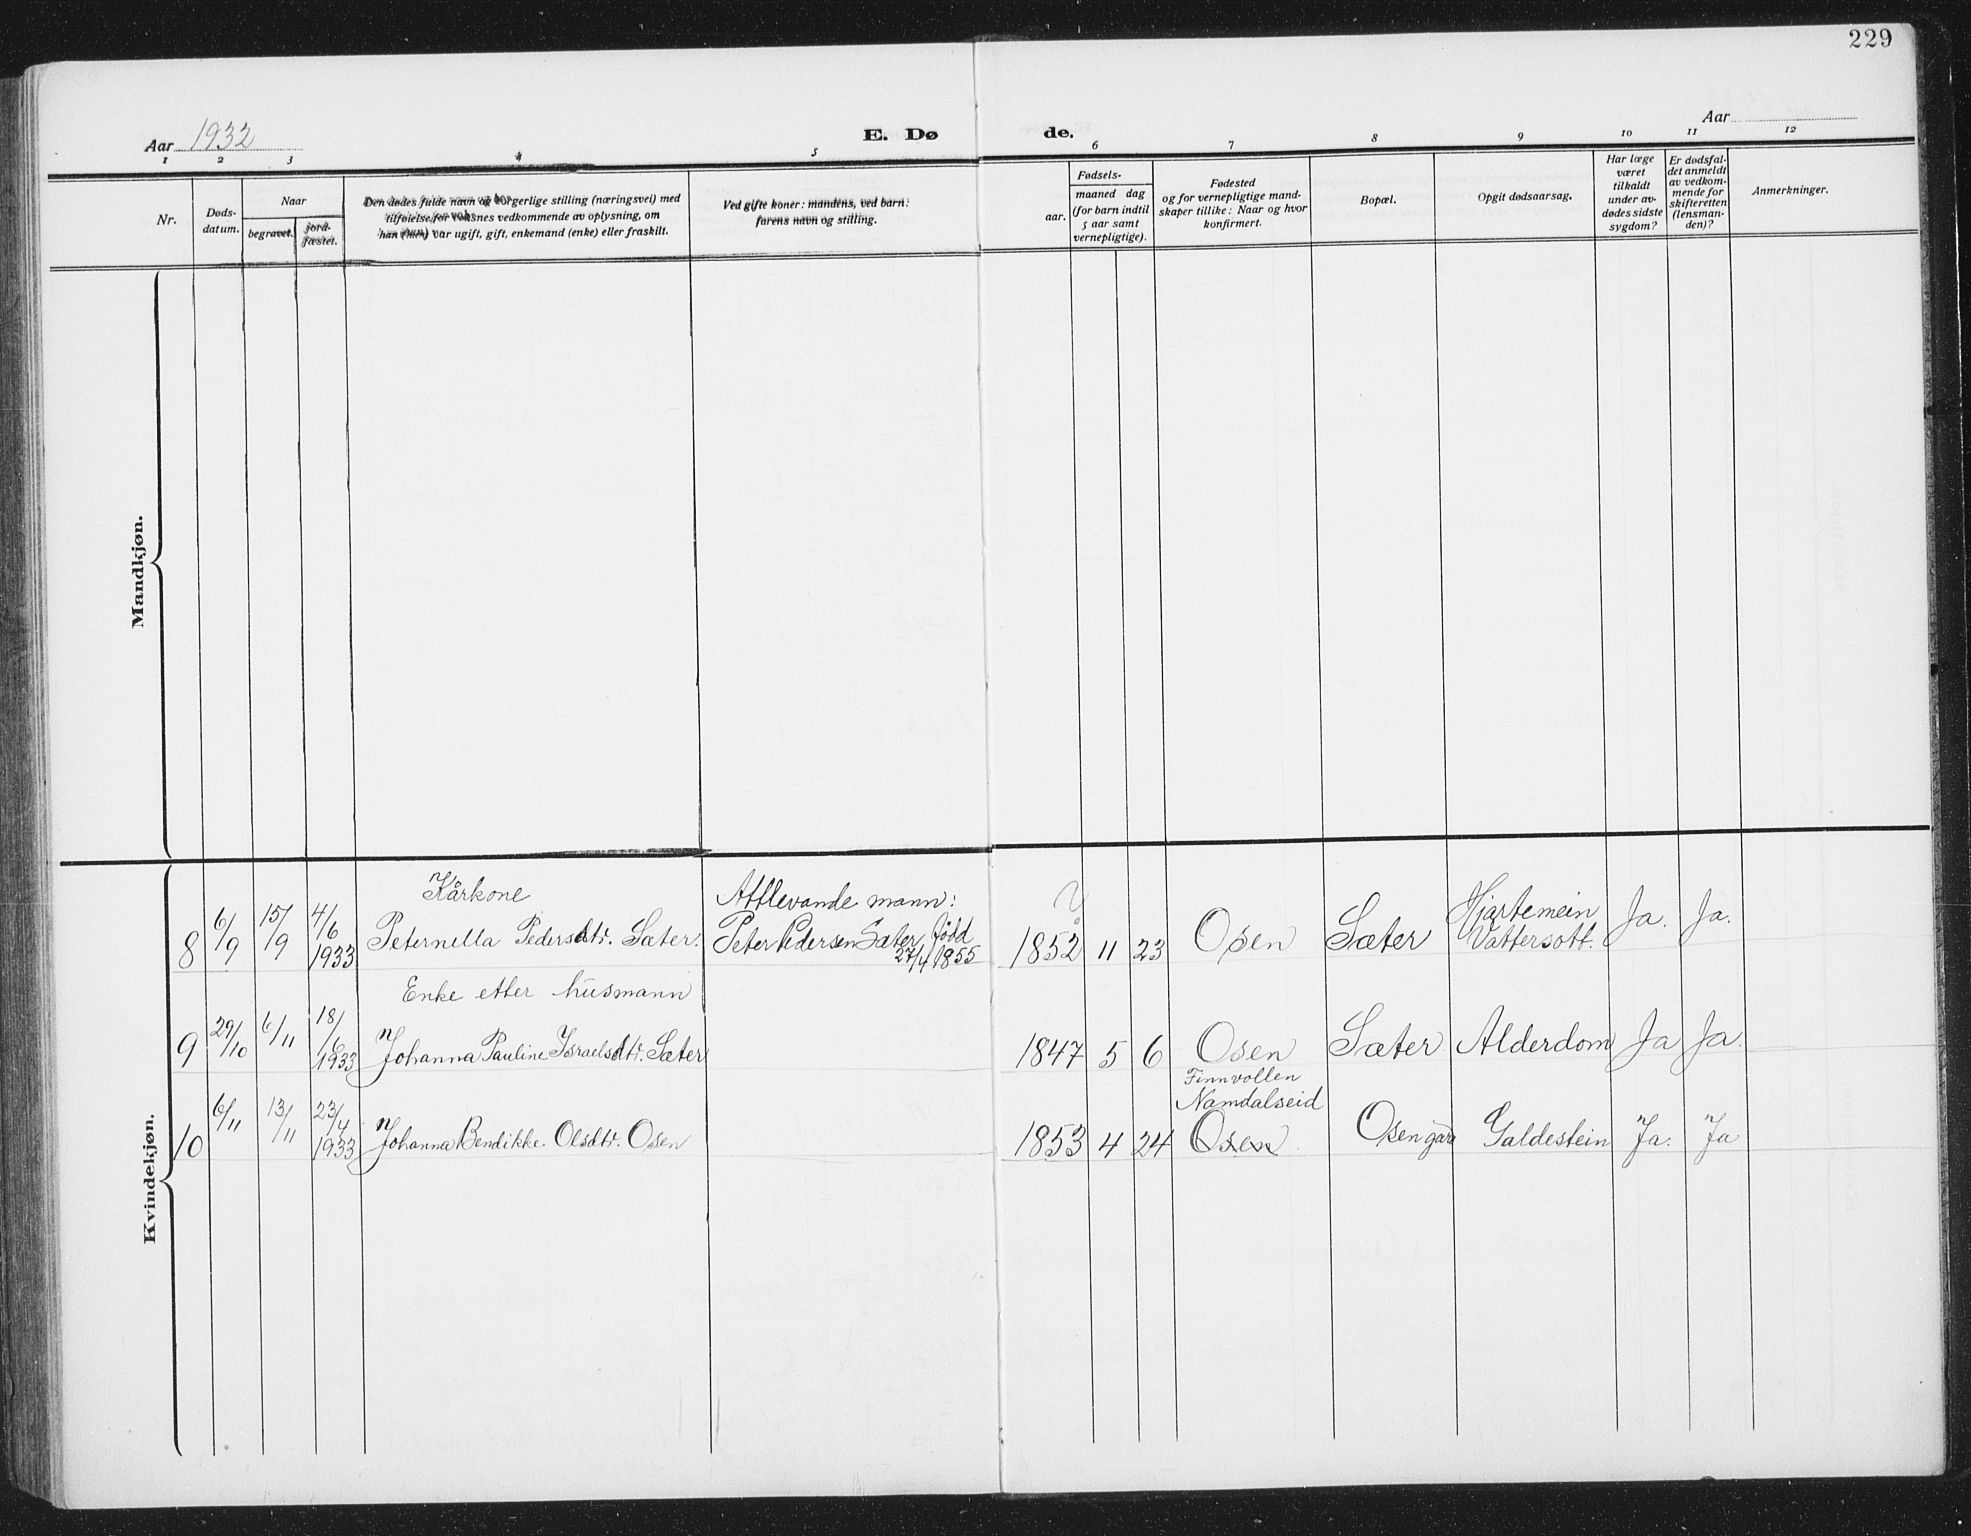 229
Aar 1932
E. Dø
de.
Aar
1 2 3 4 5 6 7 8 9 10 11 12
Nr.
Døds-
datum.
Naar
begravet.
jord-
fæstet.
Den dødes fulde navn og borgerlige stilling (næringsvei) med
tilføielse for voksnes vedkommende av oplysning, om
han (hun) var ugift, gift, enkemand (enke) eller fraskilt.
Ved gifte koner: mandens, ved barn:
farens navn og stilling.
Fødsels-
aar.
maaned dag
(for barn indtil
5 aar samt
vernepligtige).
Fødested
og for vernepligtige mand-
skaper tillike: Naar og hvor
konfirmert.
Bopæl.
Opgit dødsaarsag.
Har læge
været
tilkaldt
under av-
dødes sidste
sygdom?
Er dødsfal-
det anmeldt
av vedkom-
mende for
skifteretten
(lensman-
den)?
Anmerkninger.
Mandkjøn.
Kvindekjøn.
Kårkone Attlevande mann:
8 6/9 15/9 4/6 1933 Peternella Pedersdtr. Sæter. Peter Pedersen Sæter, född 27/4 1855 1852 11 23 Osen Sæter Hjartemein Vattersott. Ja. Ja.
Enke etter husmann
9 29/10 6/11 18/6 1933 Johanna Pauline Israelsdtr. Sæter 1847 5 6 Osen Sæter Alderdom Ja Ja.
Finnvollen
Namdalseid
10 6/11 13/11 23/4 1933 Johanna Bendikke Olsdtr. Osen 1853 4 24 Osen Osen gård Galdestein Ja. Ja